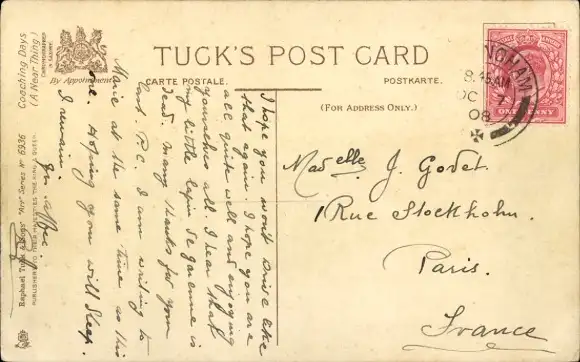 Coaching Days
(A Near Thing)
CHROMOGRAPHED
IN SAXONY.
By Appointment
TUCK'S POST CARD
CARTE POSTALE.
POSTKARTE.
(FOR ADDRESS ONLY.)
INGHAM
8.45AM
OC 7
08
ONE PENNY
I hope you won't drive like
that again. I hope you are
all quite well and enjoying
yourselves all. I hear that
my little lapin de Garenne is
dead. Many thanks for your
last P.C. I am writing to
Marie at the same time as this
one. Hoping you will sleep.
I remain.
Madelle J. Godet.
1 Rue Stockholm.
Paris.
France
Raphael Tuck & Sons' "Art" Series No 6936
PUBLISHERS TO THEIR MAJESTIES THE KING & QUEEN